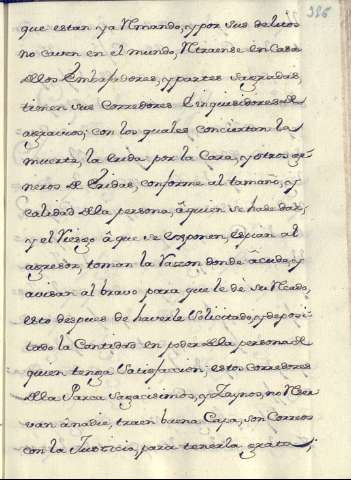 386
que estan ya Umando, y por sus delitos
no caven en el mundo, Utraense en Casa
de los Embajadores, y partes sagradas,
tienen sus Corredores, e inquisidores de
agravios; con los quales conciertan la
muerte, la erida por la Cara, y otros ge-
neros de eridas, conforme al tamaño, y
calidad de la persona, â quien se ha de dar,
y el Riesgo â que se exponen, espian al
agresor, toman la Razon donde âcude, y
avisan al bravo para que le de su Recado,
esto despues de haverle Solicitado, y deposi-
tado la Cantidad en poder de la persona de
quien tenga Satisfacion; estos Corredores
de la Parca sagacissimos, y Zaynos, no Reser
van ânadie, traen buena Capa, son Correos
con la Justicia, para tenerla grata,